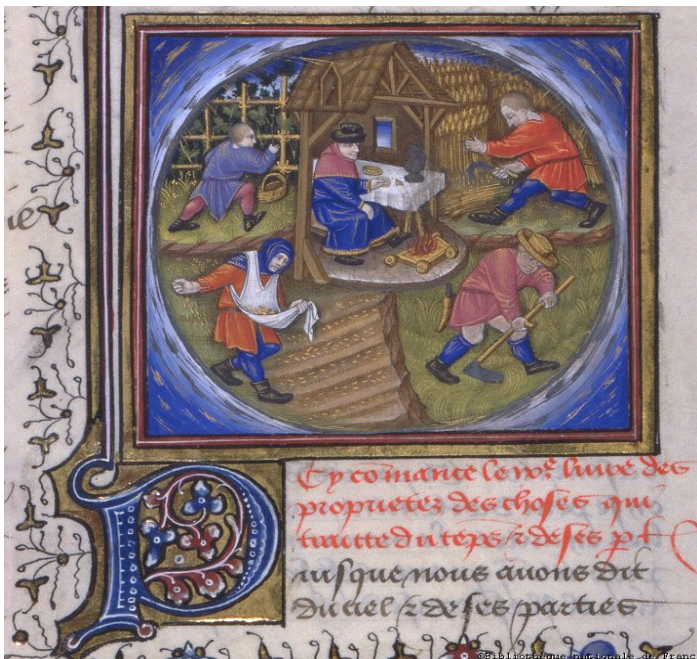 Cy comance le ix.e livre des
proprietez des choses qui
traitte du temps & de ses p
Puisque nous avons dit
du ciel & de ses parties
©Bibliothèque nationale de Franc